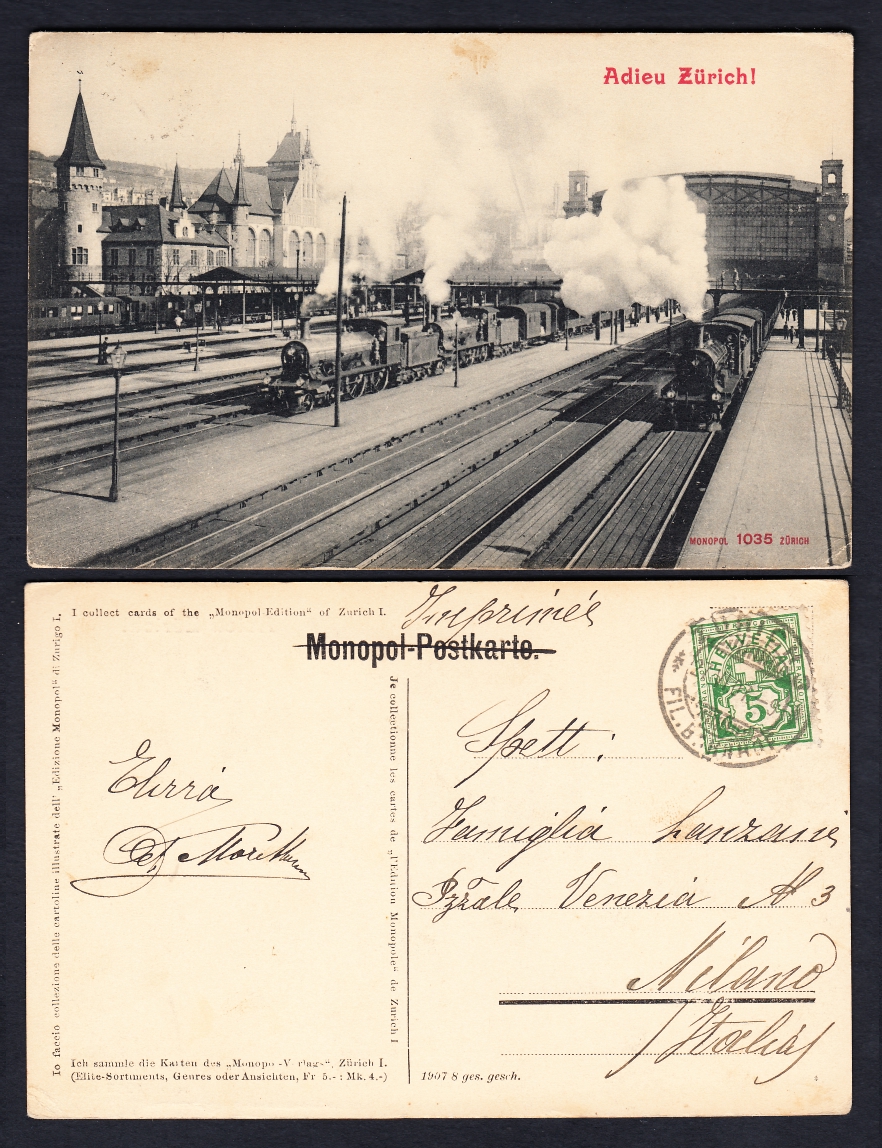 Adieu Zürich!
MONOPOL 1035 ZÜRICH
I collect cards of the „Monopol-Edition“ of Zurich I.
Imprimés
Monopol-Postkarte.
HELVETIA
5
FIL. B.
Io faccio collezione delle cartoline illustrate dell' „Edizione Monopol“ di Zurigo I.
Je collectionne les cartes de „l'Edition Monopole“ de Zurich I
Spett:
Famiglia
Pzzale Venezia No 3
Milano
Italia
Ich sammle die Karten des „Monopol-Verlags“, Zürich I.
(Elite-Sortiments, Genres oder Ansichten, Fr 5.- : Mk. 4.-)
1907/8 ges. gesch.